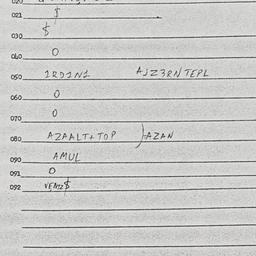 021 $
030 $
040 0
050 1RD1N1 AJZ3RN TEPL
060 0
070 0
080 AZAALT+TOP )AZAN
090 AMUL
091 0
092